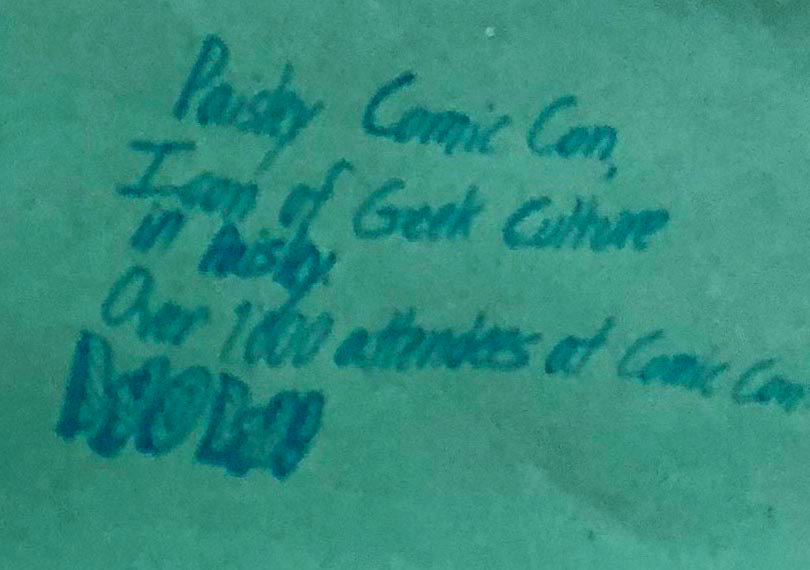 Paisley Comic Con,
Icon of Geek Culture
in Paisley.
Over 1000 attendees at Comic Con